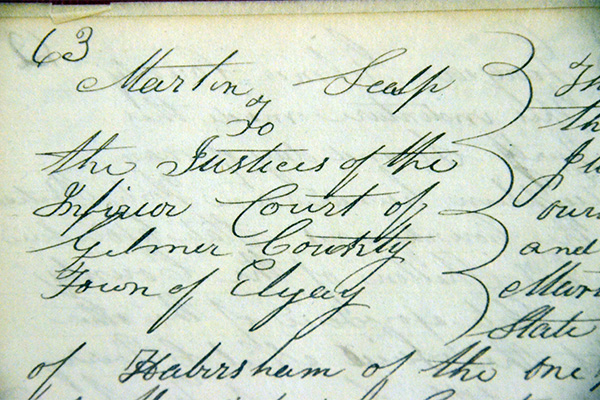 63
Martin Scalp
To
the Justices of the
Inferior Court of
Gilmer County
Town of Elyay
and
State
of Habersham of the one